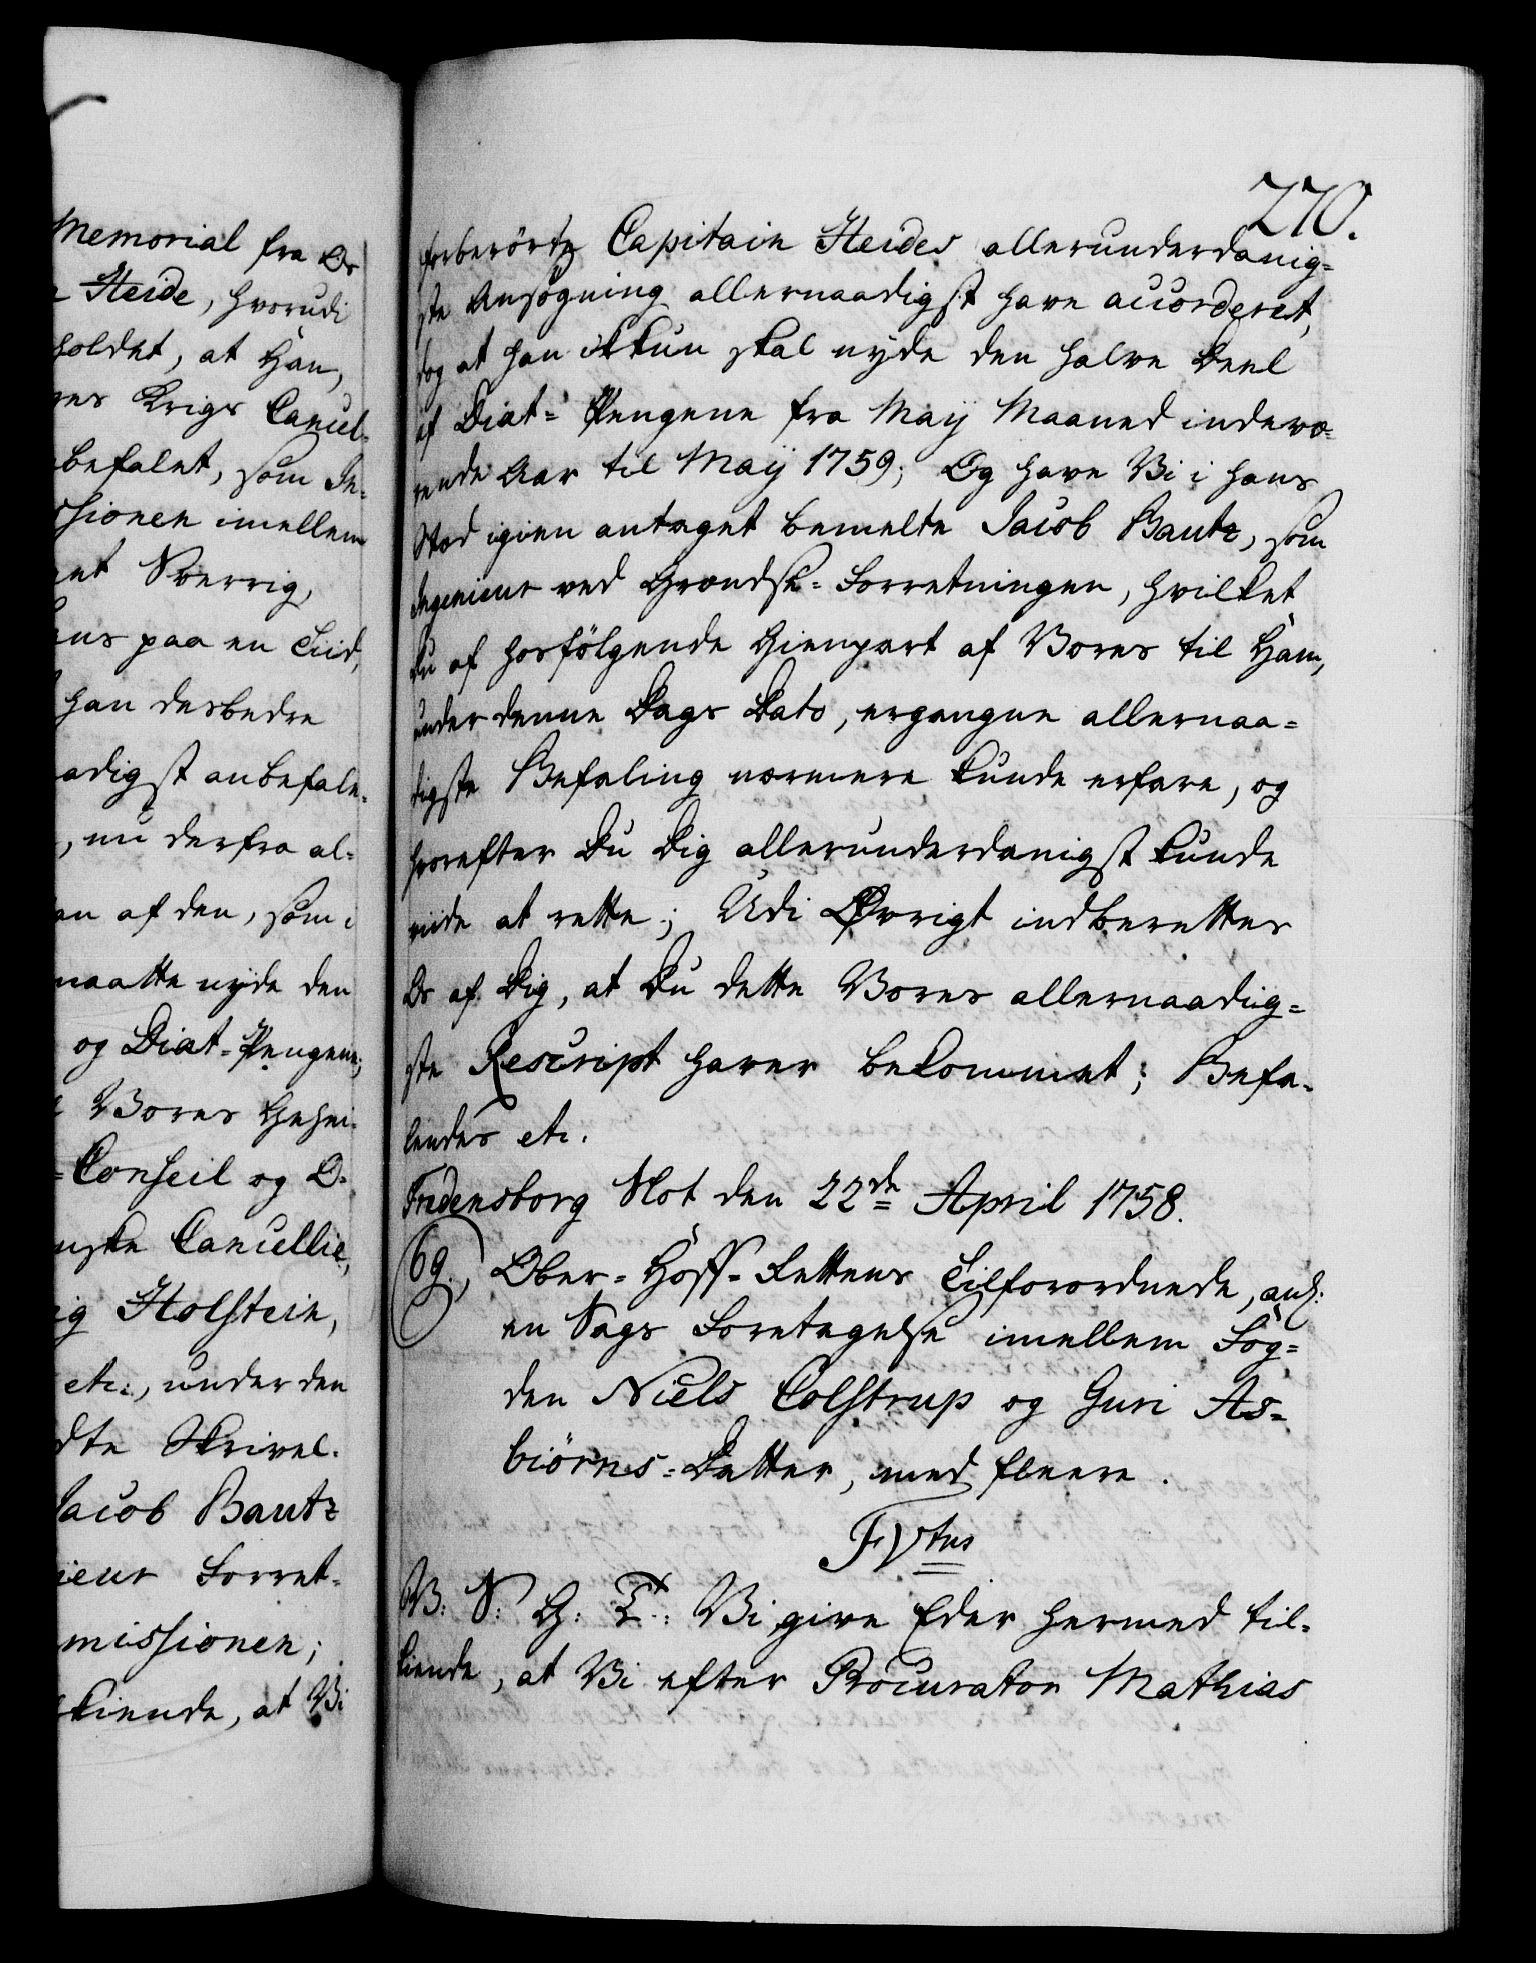 Memorial fra Os
Heide, hvorudi
holdet, at Han,
res Krigs Cancel-
befalet, som In-
ssionen imellem
Sverrig,
ens paa en Tiid,
han desbedre
adigst anbefale,
, nu derfra al-
en af den, som i
maatte nyde den
og Diæt-Pengene;
Vores Geheime-
Conseil og O-
nske Cancellie,
ig Holstein,
etc:, under den
dte Skrivel-
Jacob Bautz
ieur Forret-
missionen;
kiende, at Vi
270.
forberörte Capitain Heides allerunderdanig-
ste Ansögning allernaadigst have accorderet,
dog at han ikkun skal nyde den halve Deel
af Diæt-Pengene fra Maij Maaned indevæ-
rende Aar til Maij 1759; Og have Vi i hans
Stæd igien antaget bemelte Jacob Bautz, som
Ingenieur ved Grændse-Forretningen, hvilket
Du af hosfölgende Gienpart af Vores til Ham,
under denne Dags Dato, ergangne allernaa-
digste Befaling nærmere kunde erfare, og
hvorefter Du Dig allerunderdanigst kunde
viide at rette; Udi Øvrigt indberettes
Os af Dig, at Du dette Vores allernaadig-
ste Rescript haver bekommet; Befa-
lendes etc.
Fredensborg Slot den 22de April 1758.
69., Ober-Hoff-Rettens Tilforordnede, anl:
en Sags Foretagelse imellem Fog-
den Niels Colstrup og Guri As-
biörns-Datter, med fleere.
FVtus
V: S: G: T: Vi give Eder hermed til-
kiende, at Vi efter Procurator Mathias